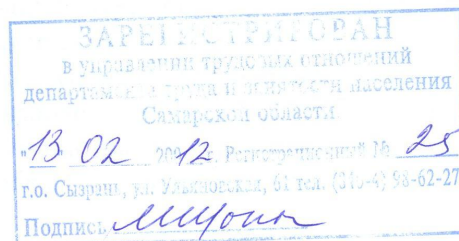 ЗАРЕГИСТРИРОВАН
в управлении трудовых отношений
департамента труда и занятости населения
Самарской области
"13" 02 2012 г. Регистрационный № 25
г.о. Сызрань, ул. Ульяновская, 61 тел. 98-62-27
Подпись